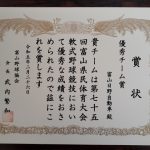 賞状
優秀チーム賞
富山日野自動車 殿
貴チームは第七十五
回富山県民体育大会
軟式野球競技におい
て優秀な成績をおさ
められたので茲にこ
れを賞します
富山野球協会
会長 武内繁和